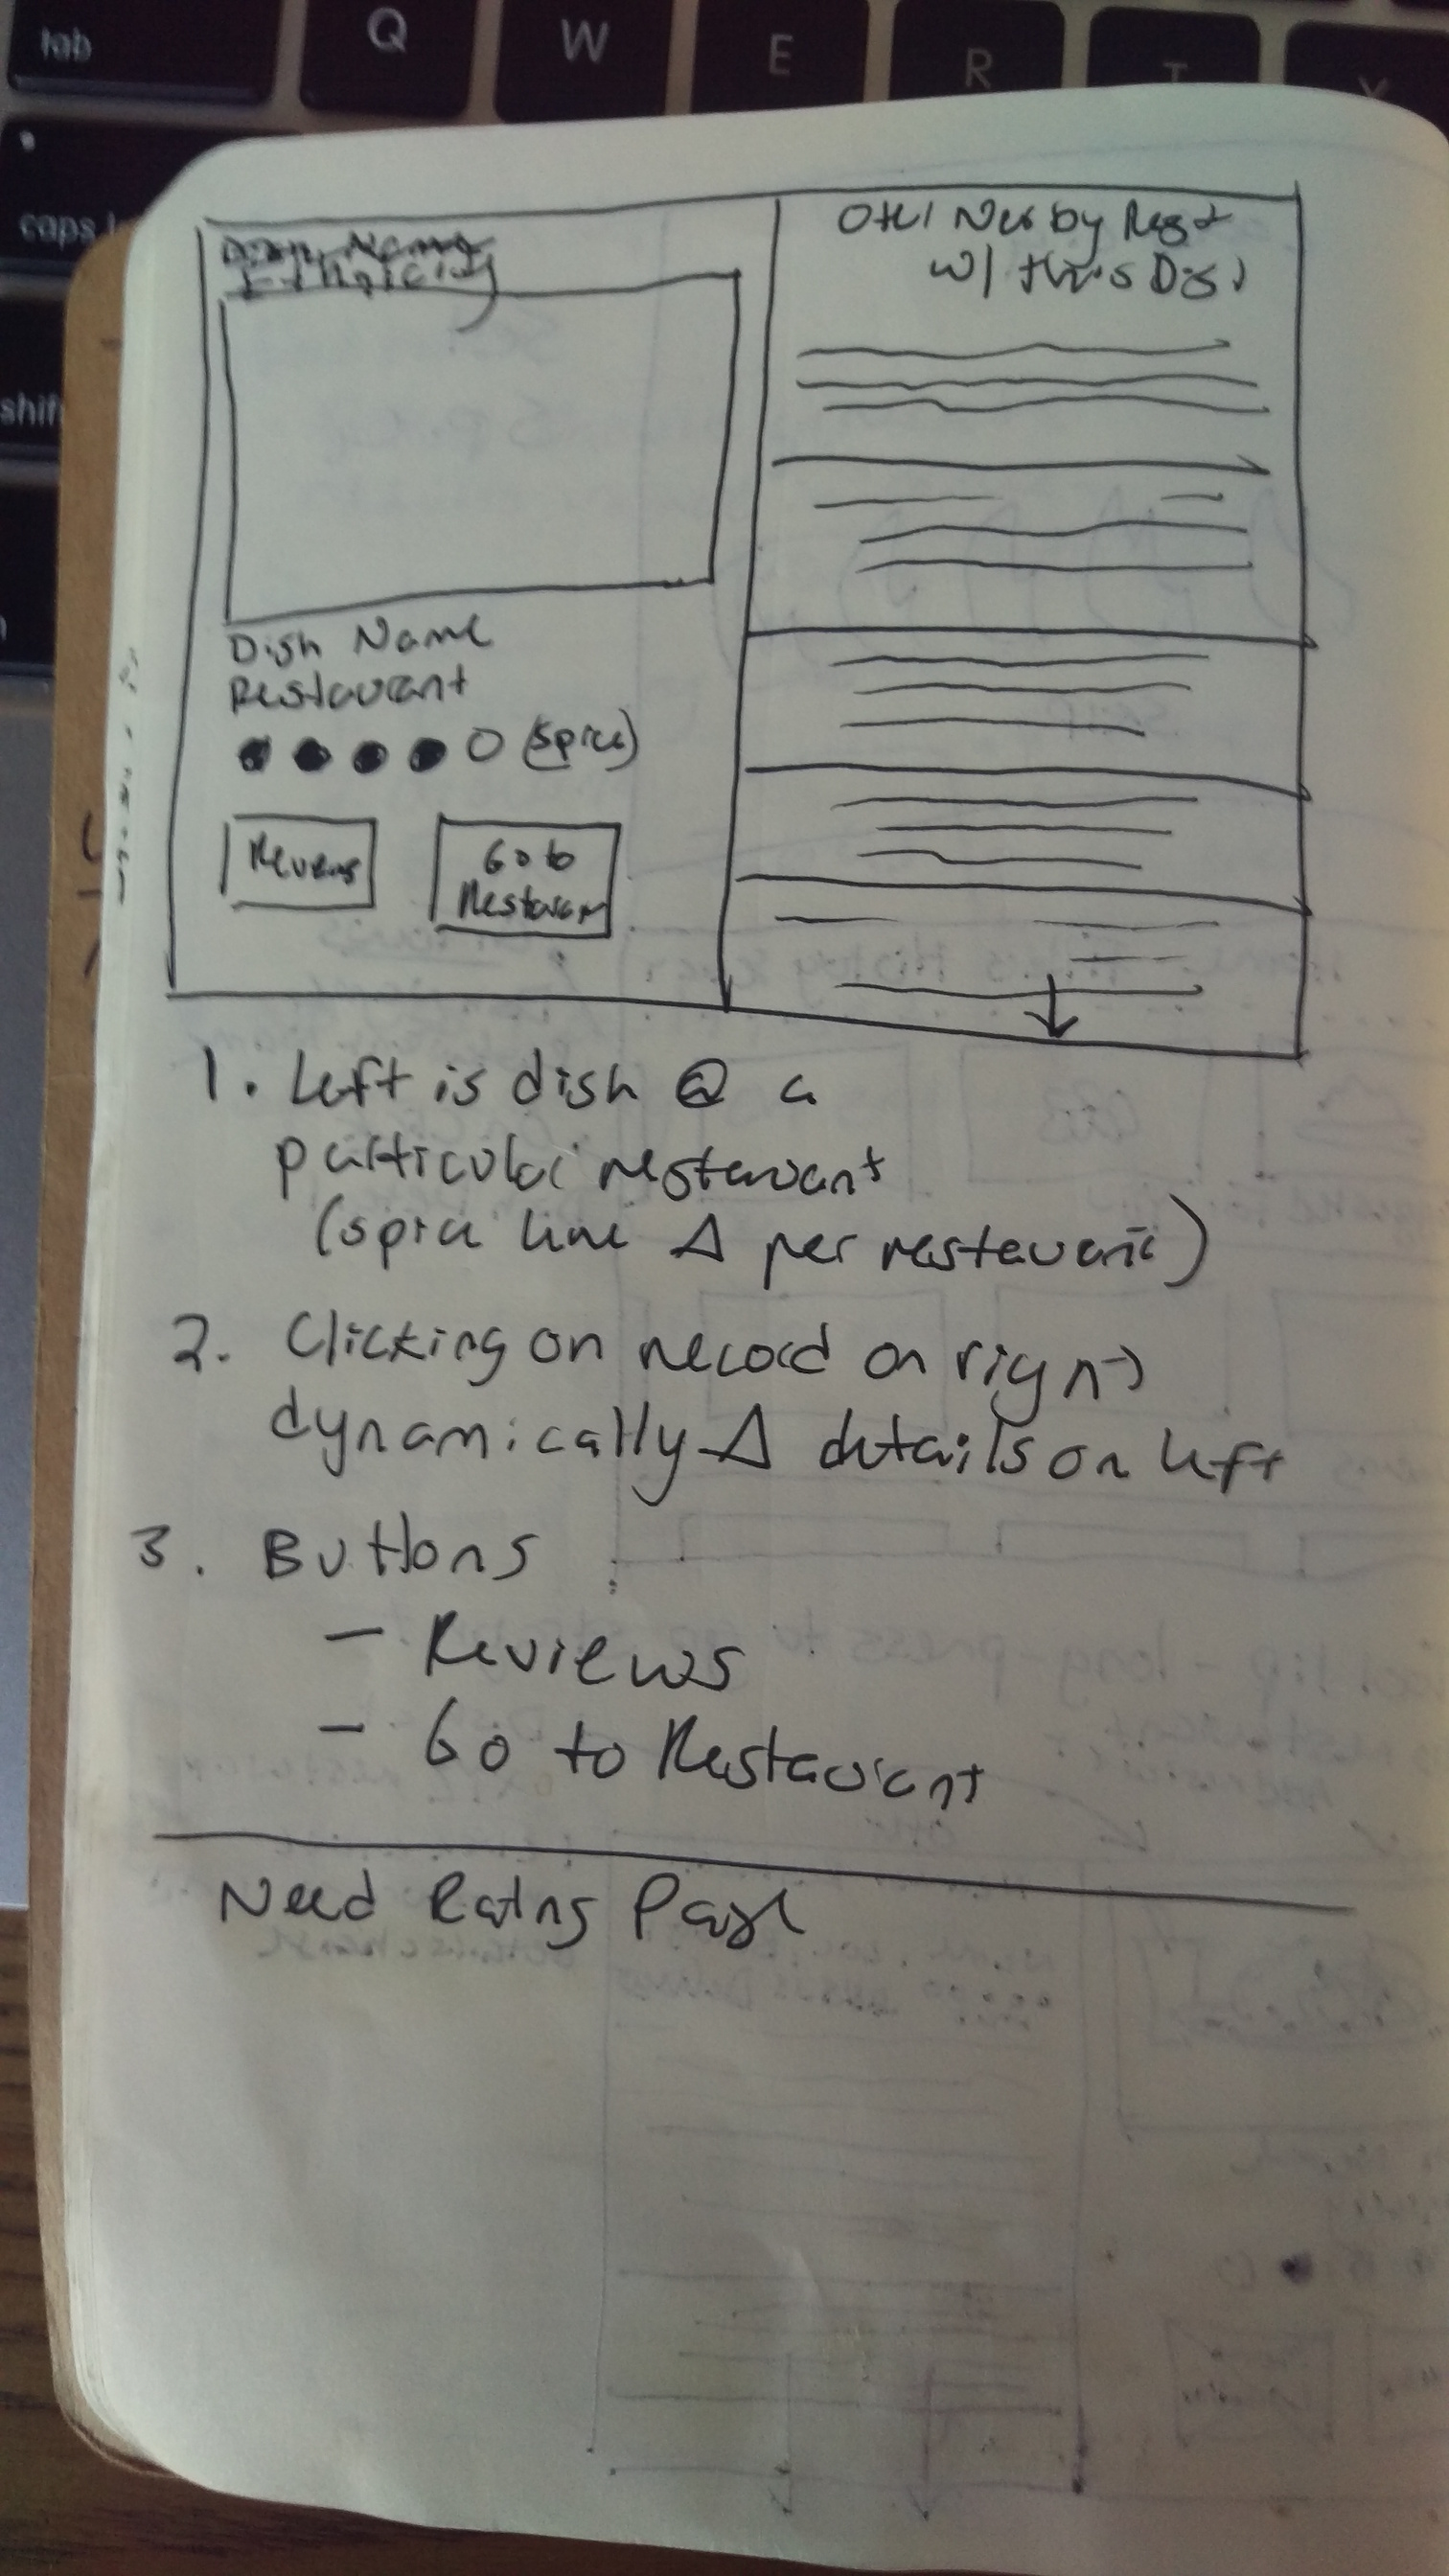 tab
Q
W
E
R
T
Y
caps l
shift
Dish Name
Ethnicity
Other Nearby Rest
w/ this Dish
Dish Name
Restaurant
(spice)
Reviews
Go to
Restaurant
1. Left is dish @ a
particular restaurant
(spice line Δ per restaurant)
2. Clicking on record on right
dynamically Δ details on left
3. Buttons
- Reviews
- Go to Restaurant
Need Rating Page